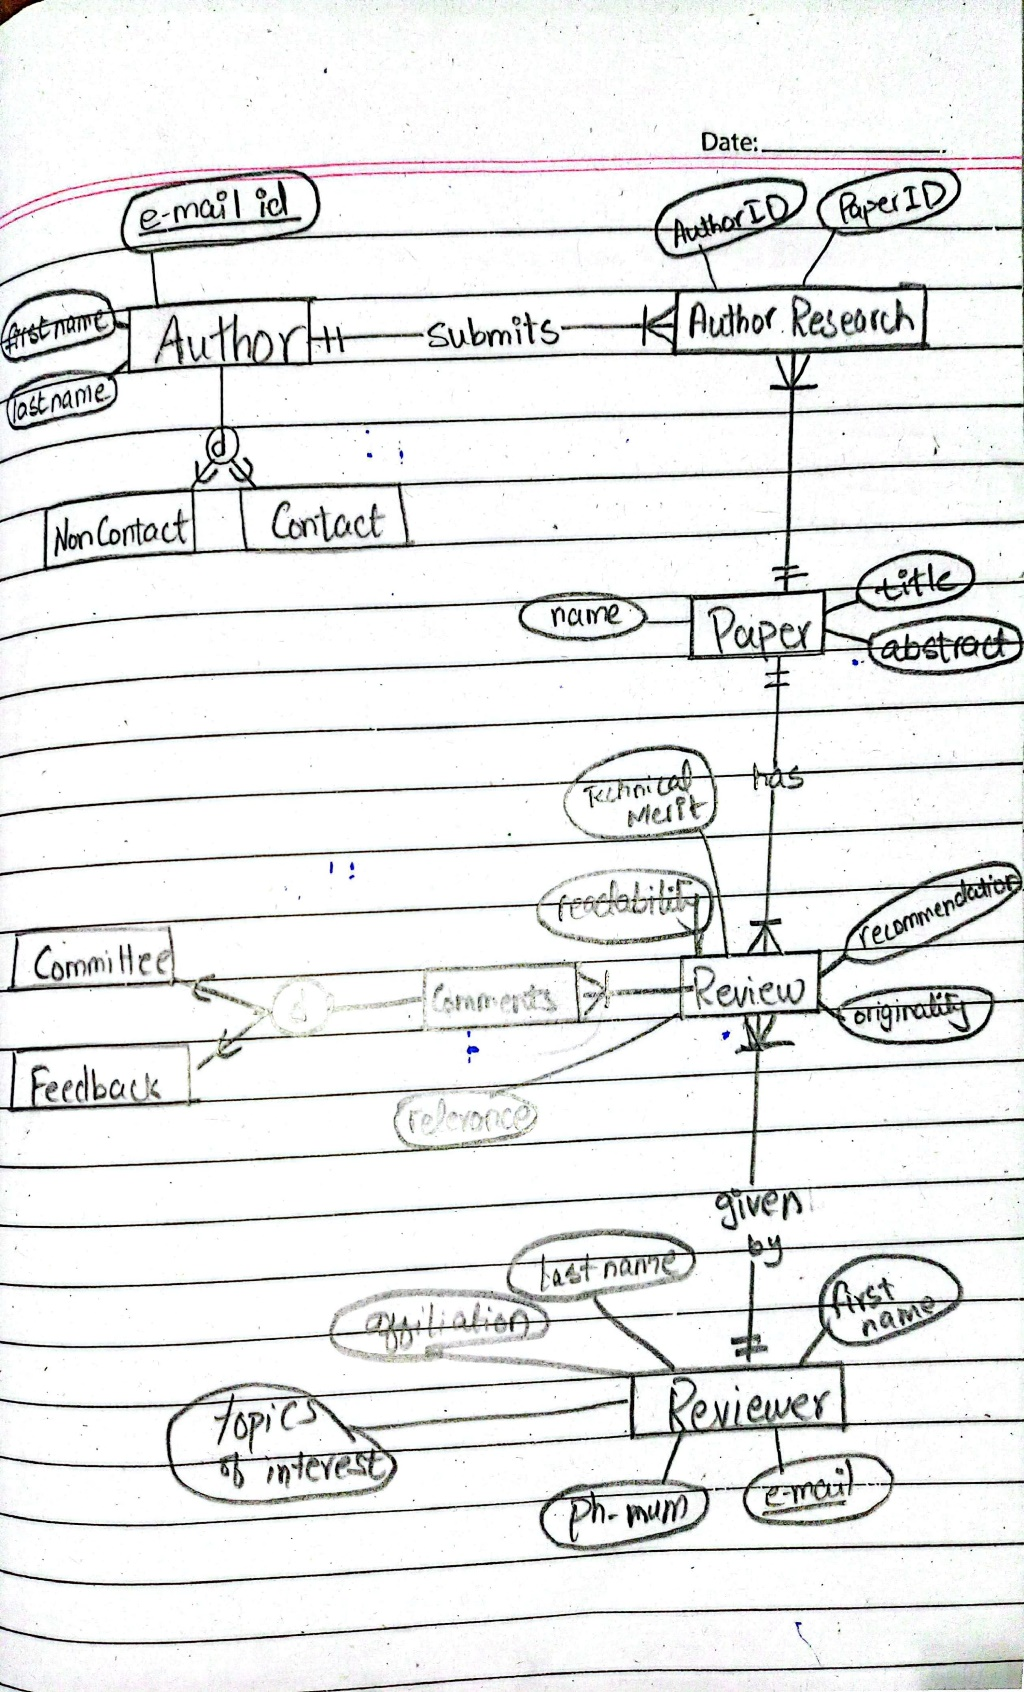 Date:
e-mail id
AuthorID
PaperID
first name
Author
submits
Author Research
last name
d
NonContact
Contact
title
name
Paper
abstract
has
Technical
Merit
readability
recommendation
Committee
d
Comments
Review
originality
Feedback
relevance
given
by
last name
first
name
affiliation
Reviewer
topics
of interest
ph-num
e-mail